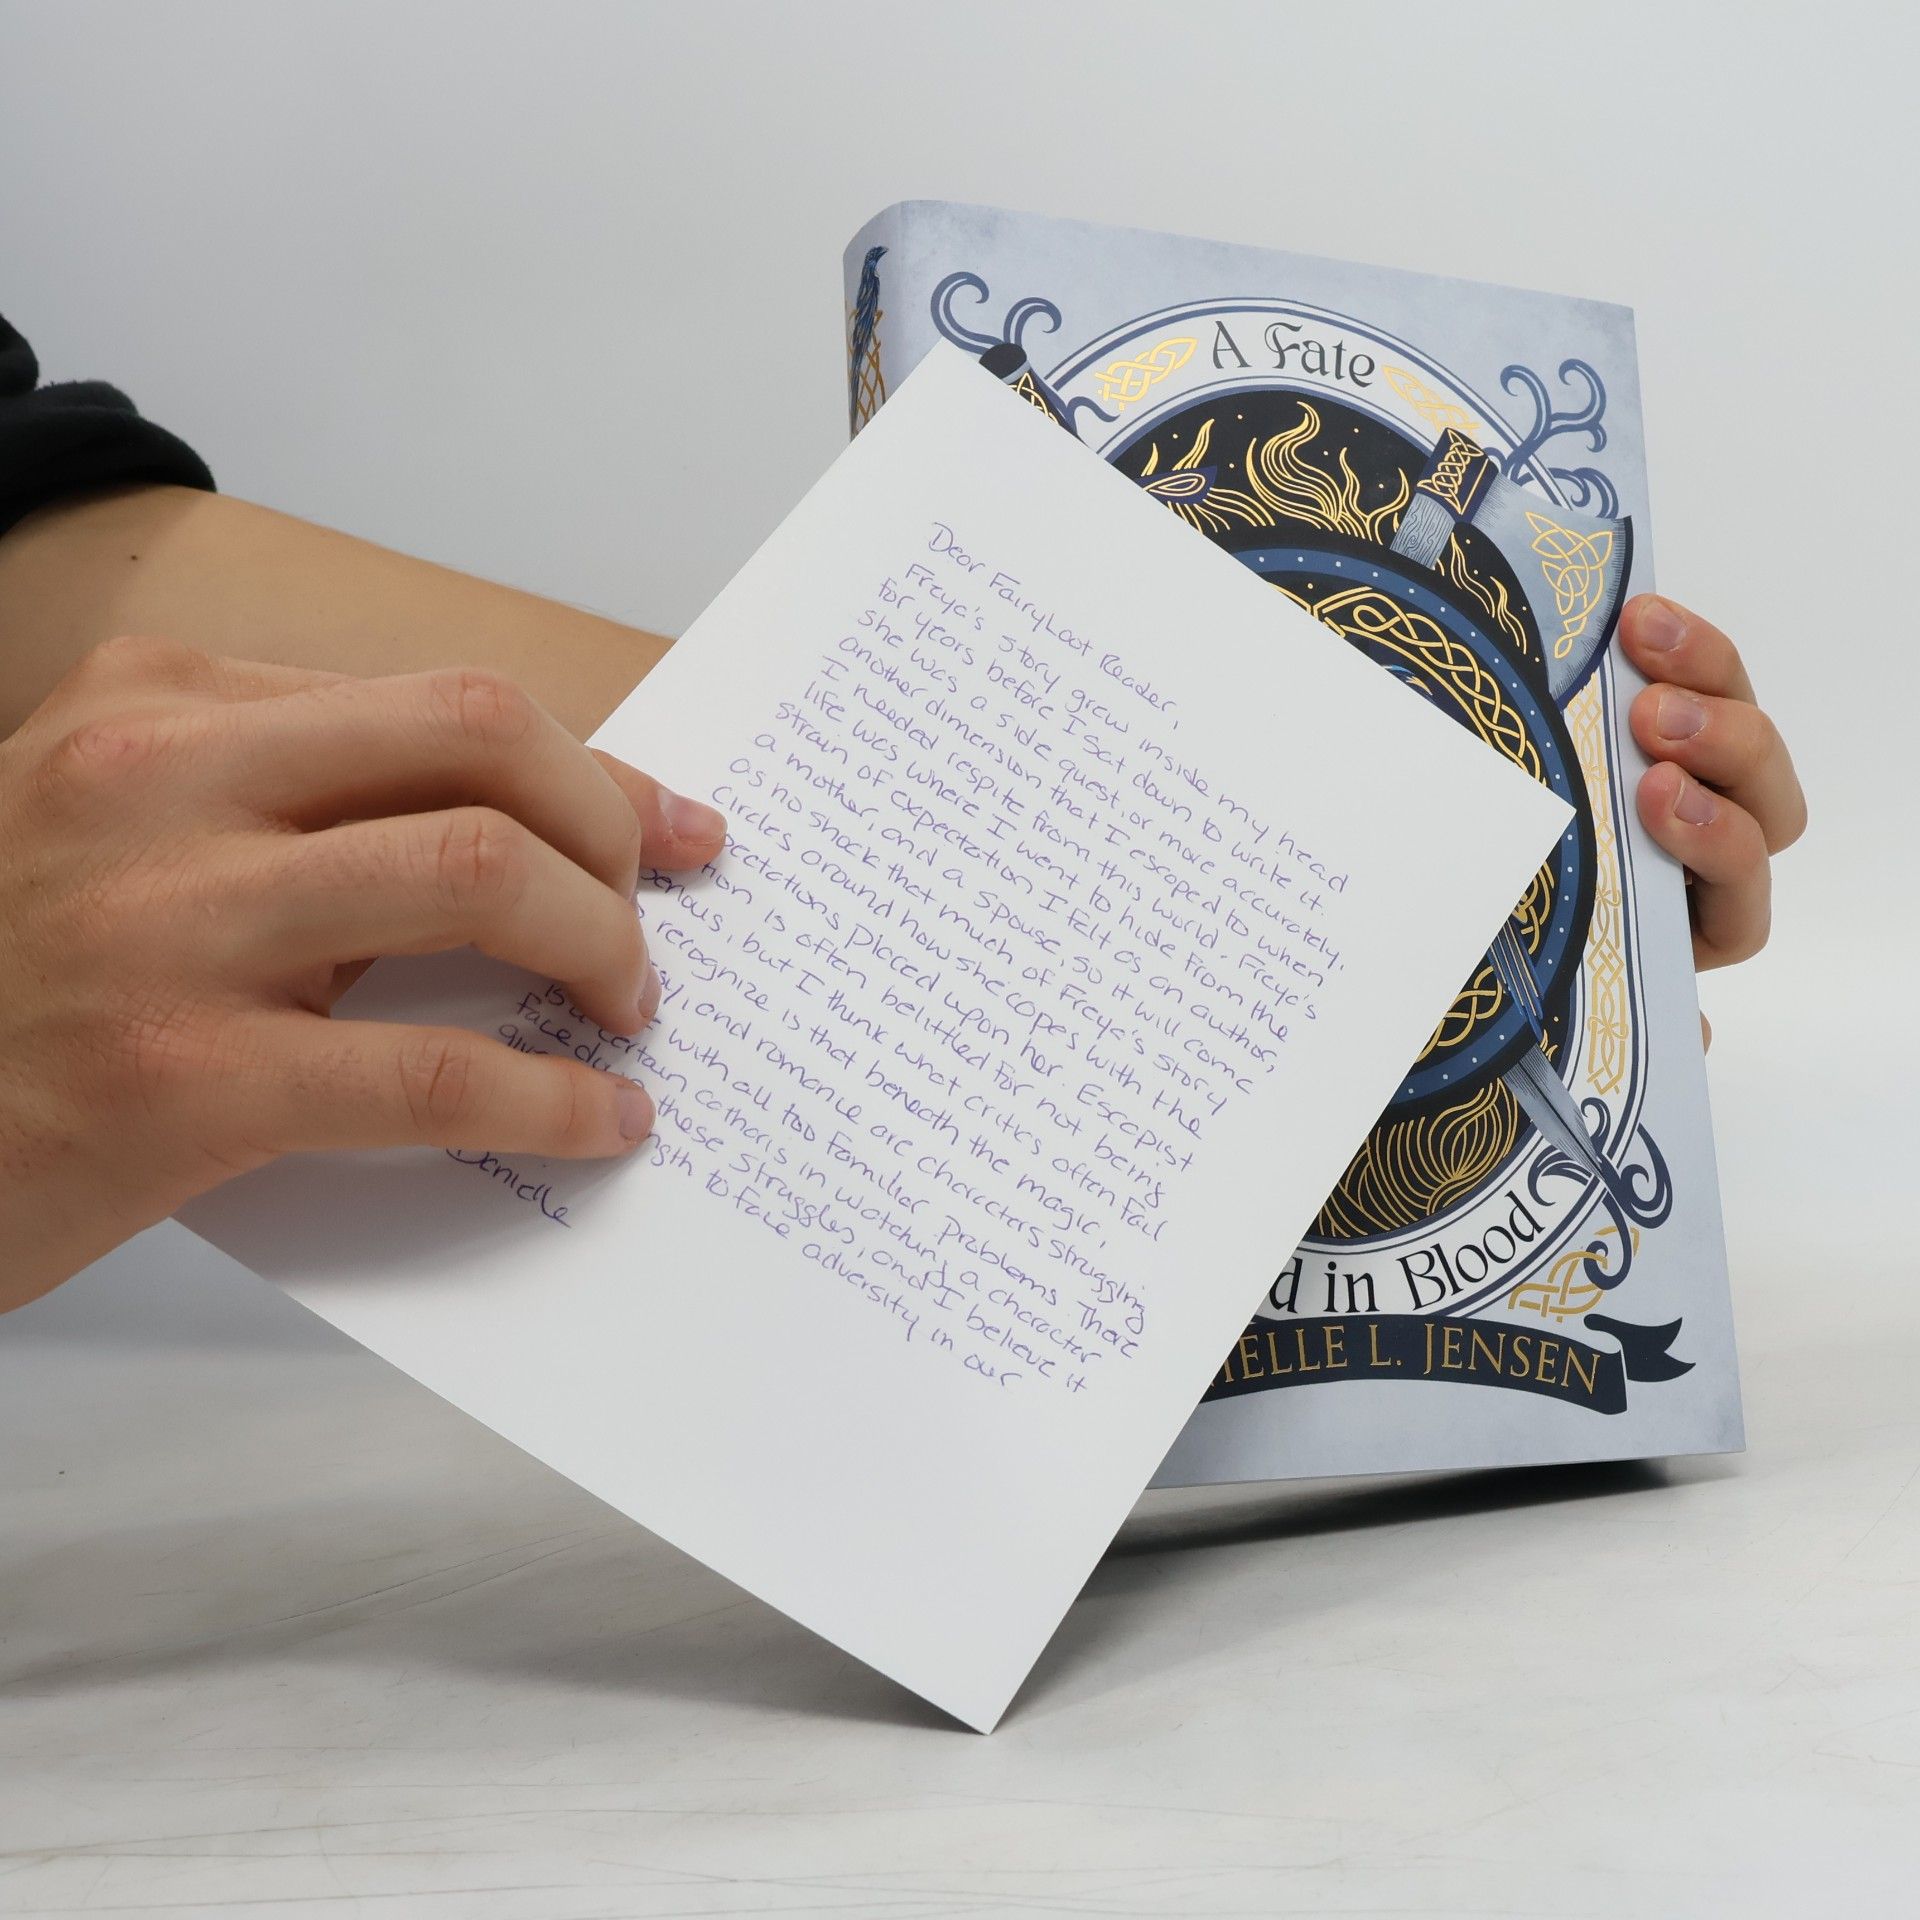 A Fate
Dear FairyLoot Reader,
Freya's story grew inside my head
for years before I sat down to write it.
She was a side quest, or more accurately,
another dimension that I escaped to when
I needed respite from this world. Freya's
life was where I went to hide from the
strain of expectation I felt as an author,
a mother, and a spouse, so it will come
as no shock that much of Freya's story
circles around how she copes with the
placed upon her. Escapist
is often belittled for not being
but I think what critics often fail
recognize is that beneath the magic,
and romance are characters struggling
with all too familiar problems. There
is a certain catharsis in watching a character
face these struggles, and I believe it
to face adversity in our
Danielle
in Blood
L. JENSEN